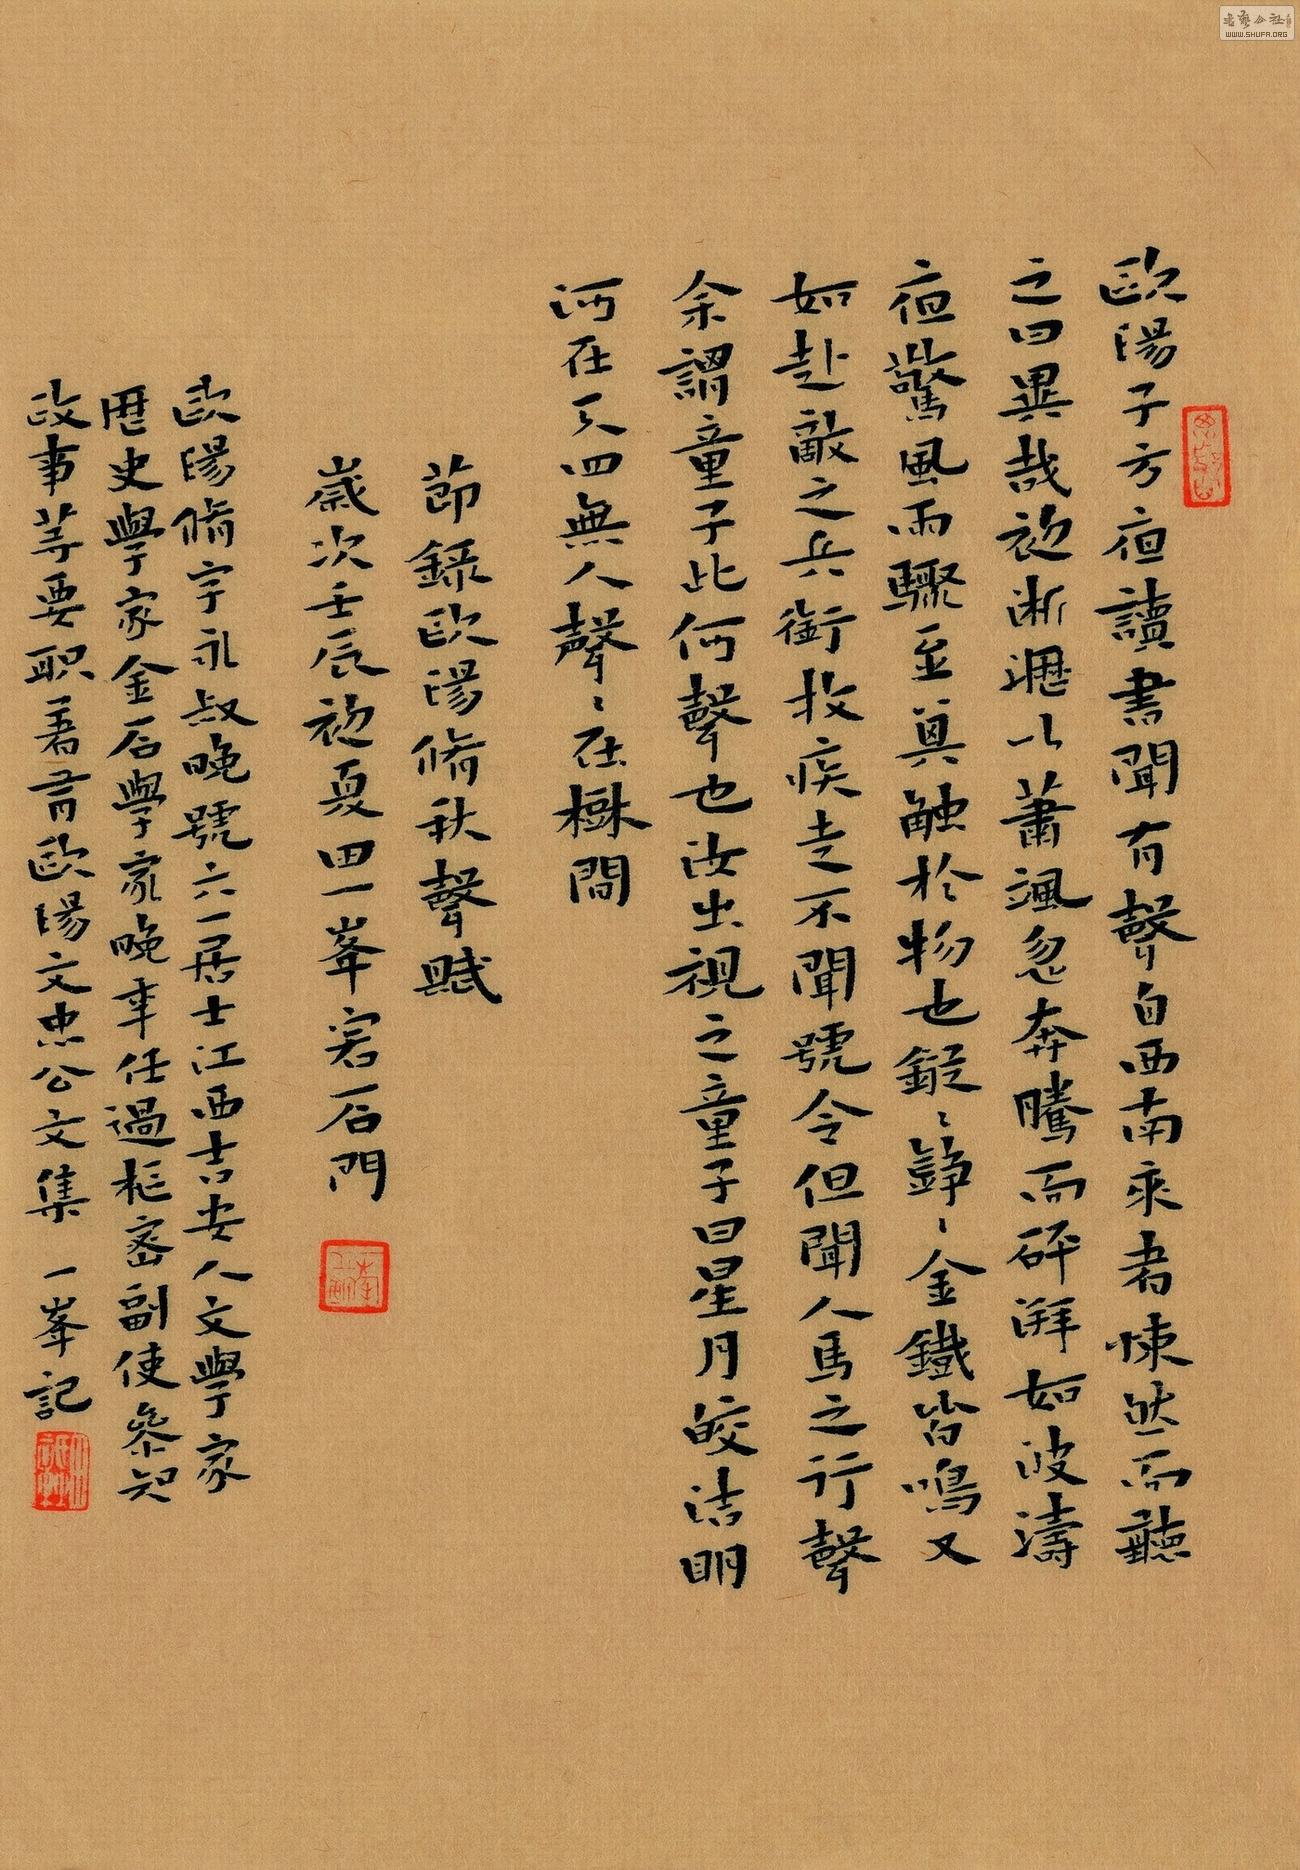 歐陽子方夜讀書聞有聲自西南來者悚然而聽
之曰異哉初淅瀝以蕭颯忽奔騰而砰湃如波濤
夜驚風雨驟至其觸於物也鏦〻錚〻金鐵皆鳴又
如赴敵之兵銜枚疾走不聞號令但聞人馬之行聲
余謂童子此何聲也汝出視之童子曰星月皎洁明
河在天四無人聲〻在樹間
節錄歐陽脩秋聲賦
歲次壬辰初夏田一峯石門
歐陽脩字永叔晚號六一居士江西吉安人文學家
歷史學家金石學家晚年任過樞密副使參知
政事等要职著有歐陽文忠公文集 一峯記
書藝公社
WWW.SHUFA.ORG